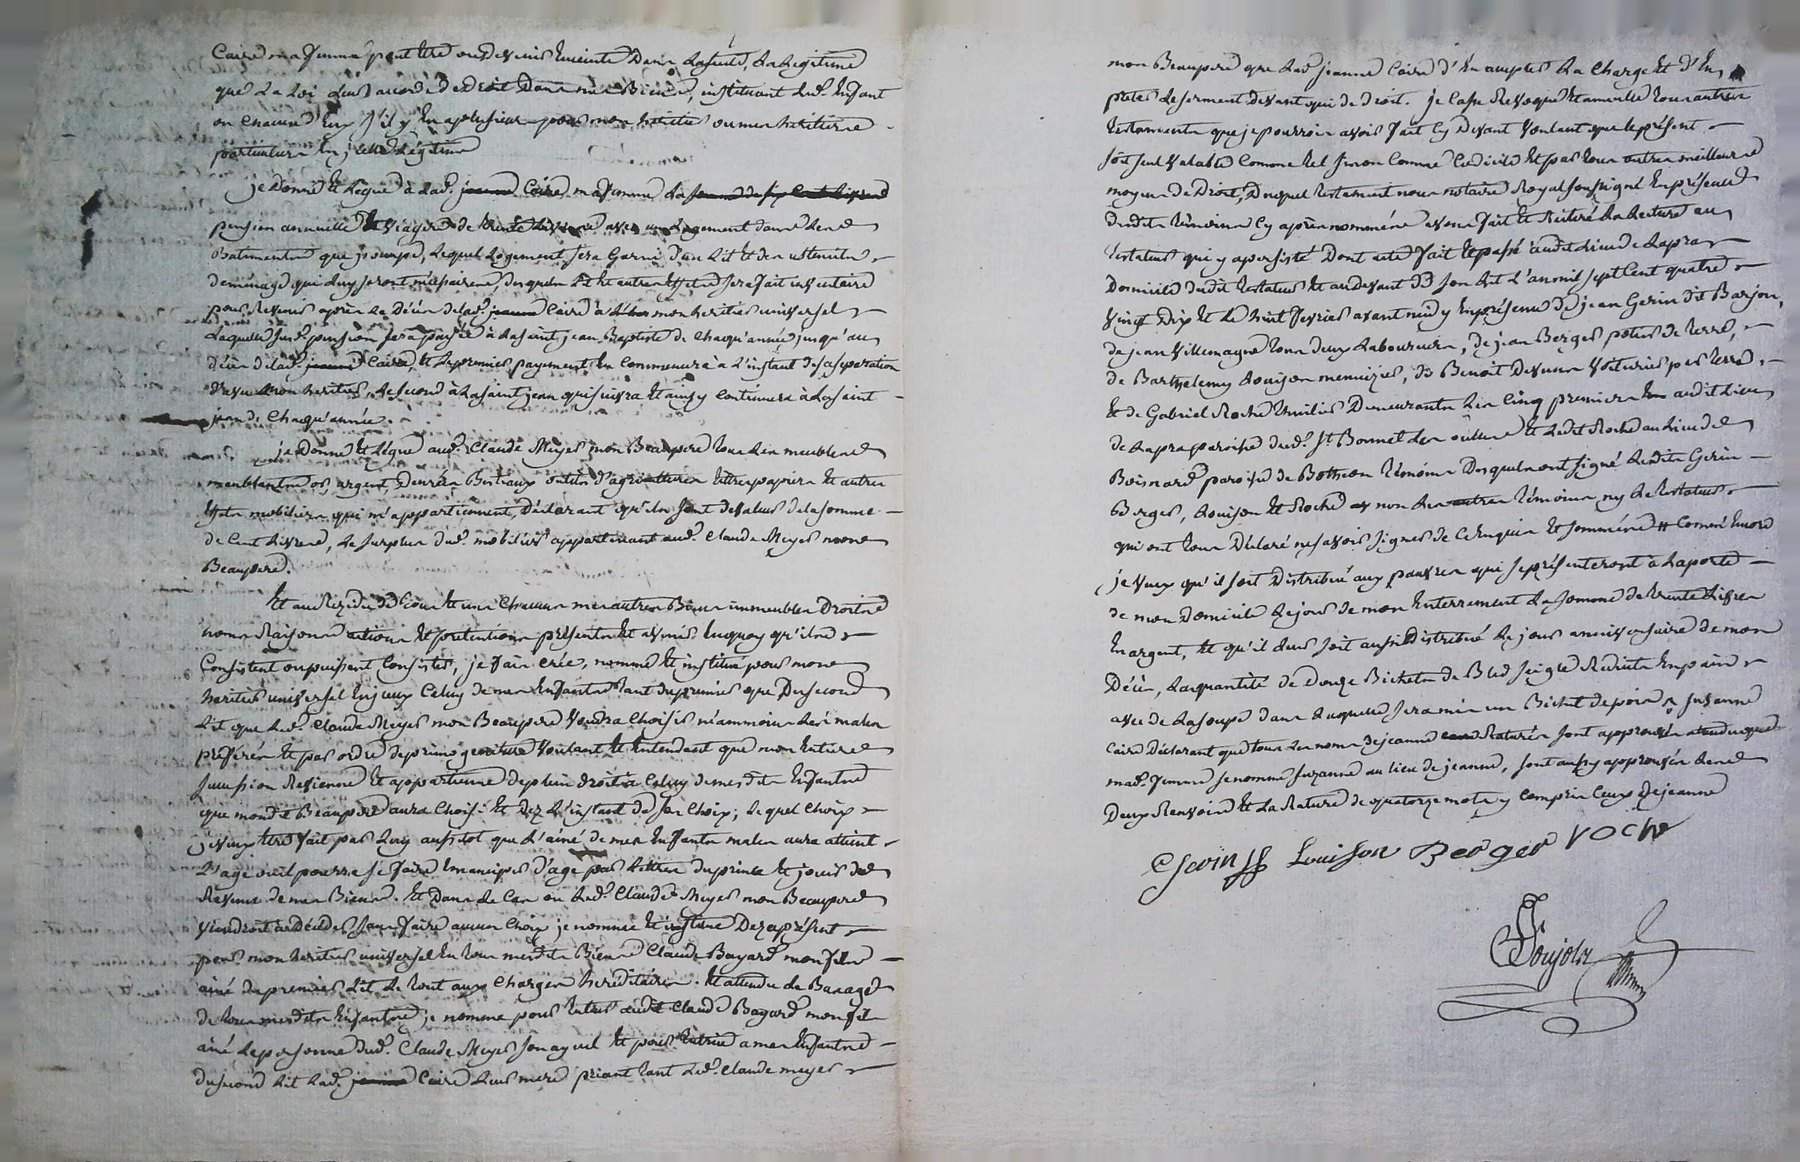 Caire ma femme peut etre ou devenir enceinte dans la suite, la legitime
que la loi leur accorde de droit dans mes Biens, instituant lesd. Enfant
ou chacun d'eux s'il y en a plusieurs pour mon heritier ou mes heritiers
particuliers en icelle légitime
je donne et legue à lad. jeanne Caire ma femme la somme de six cent livres
pension annuelle et viagere de trente livres avec un logement dans les
Batiments que j'occupe, lequel logement sera Garni d'un lit et des ustensiles
de ménage qui luy seront nécessaires, desquels lit et autres effets sera fait inventaire
pour revenir après le décès de lad. jeanne Caire à mon heritier universel
laquelle susd. pension sera payée à la saint jean Baptiste de chaqu'année jusqu'au
décès de lad. jeanne Caire, et le premier payement en commencera à l'instant de sa separation
d'avec mon heritier, le second à la saint jean qui suivra et ainsy continuera à la saint
jean de chaqu'année.
je donne et legue aud. Claude Meyer mon Beaupere tous les meubles
meublants or, argent, denrées, Bestiaux outils d'agriculture lettres papiers et autres
effets mobiliers qui m'appartiennent, déclarant qu'ils sont de valeur de la somme
de Cent livres, le surplus du. mobilier appartenant aud. Claude Meyer mon
Beaupere.
Et au Rezidu de tous et uns chacuns mes autres Biens immeubles Droits
noms Raisons actions et prétentions présents et avenir en quoy qu'ils
Consistent ou puissent consister, je fais crée, nomme et institue pour mon
heritier universel en iceux Celuy de mes Enfants tant du premier que du second
Lit que led. Claude Meyer mon Beaupere voudra choisir néammoins les males
préférés et par ordre de primogeniture voulant et entendant que mon entiere
succession revienne et appartienne de plein droit à Celuy de mesdits Enfants
que mondit Beaupere aura choisi et dez l'instant de son choix; lequel choix
je veux etre fait par luy aussitot que l'ainé de mes Enfants males aura atteint
l'age où il pourra se faire emanciper d'age par lettres du prince et jouir des
Revenus de mes Biens. Et dans le Cas ou led. Claude Meyer mon Beaupere
viendroit à décéder sans faire aucun Choix je nomme et institue dez à présent
pour mon heritier universel en tous mesdits Biens Claude Bayard mon fils
ainé du premier lit le tout aux Charges héréditaires. Et attendu le Basage
de tous mesdits Enfants je nomme pour tuteur audit Claude Bayard mon fils
ainé la personne dud. Claude Meyer son ayeul et pour tutrice a mes Enfants
du second lit lad. jeanne Caire leur mere priant tant led. Claude meyer
mon Beaupere que lad. jeanne Caire d'en accepter la charge et d'en
preter le serment devant qui de droit. Je casse Revoque et annulle tous autres
testaments que je pourrois avoir fait cy devant voulant que le présent
soit seul valable comme tel sinon comme Codicile et par tous autres meilleurs
moyens de Droit, Duquel testament nous notaire Royal soussigné En présence
desdits témoins cy après nommés avons fait et réitéré la lecture au
testateur qui y a persisté Dont acte fait et passé audit lieu de Lapra
Domicile dudit testateur et au devant de son lit l'an mil sept Cent quatre
vingt Dix et le huit fevrier avant midy En présence de jean Gerin dit Barjon,
de jean Villemagne tous deux laboureurs, de jean Berger potier de terre,
de Barthelemy Louison menuizier, de Benoit Devaux voiturier par terre,
et de Gabriel Roche tuilier Demeurants les cinq premiers audit lieu
de Lapra paroisse dud. St Bonnet les oulles et ledit Roche au lieu de
Boisnard paroisse de Bothéon témoins Desquels ont signé lesdits Gerin
Berger, Louison et Roche non les autres témoins ny le testateur
qui ont tous Déclaré ne savoir signer de ce enquis et sommés # Comme encore
je veux qu'il soit distribué aux pauvres qui se présenteront à la porte
de mon domicile le jour de mon Enterrement la somme de trente livres
En argent, et qu'il leur soit aussi distribué le jour anniversaire de mon
Décès, la quantité de Douze Bichets de Bled seigle Reduits En pain
avec de la soupe dans laquelle sera mis un Bichet de pois # Suzanne
Caire Déclarant que tous les noms de jeanne Raturés sont approuvés attendu que
mad. femme se nomme Suzanne au lieu de jeanne, sont aussy approuvés les
Deux Renvois et la Rature de quatorze mots y compris Ceux de jeanne
Gerin Louison Berger Roche